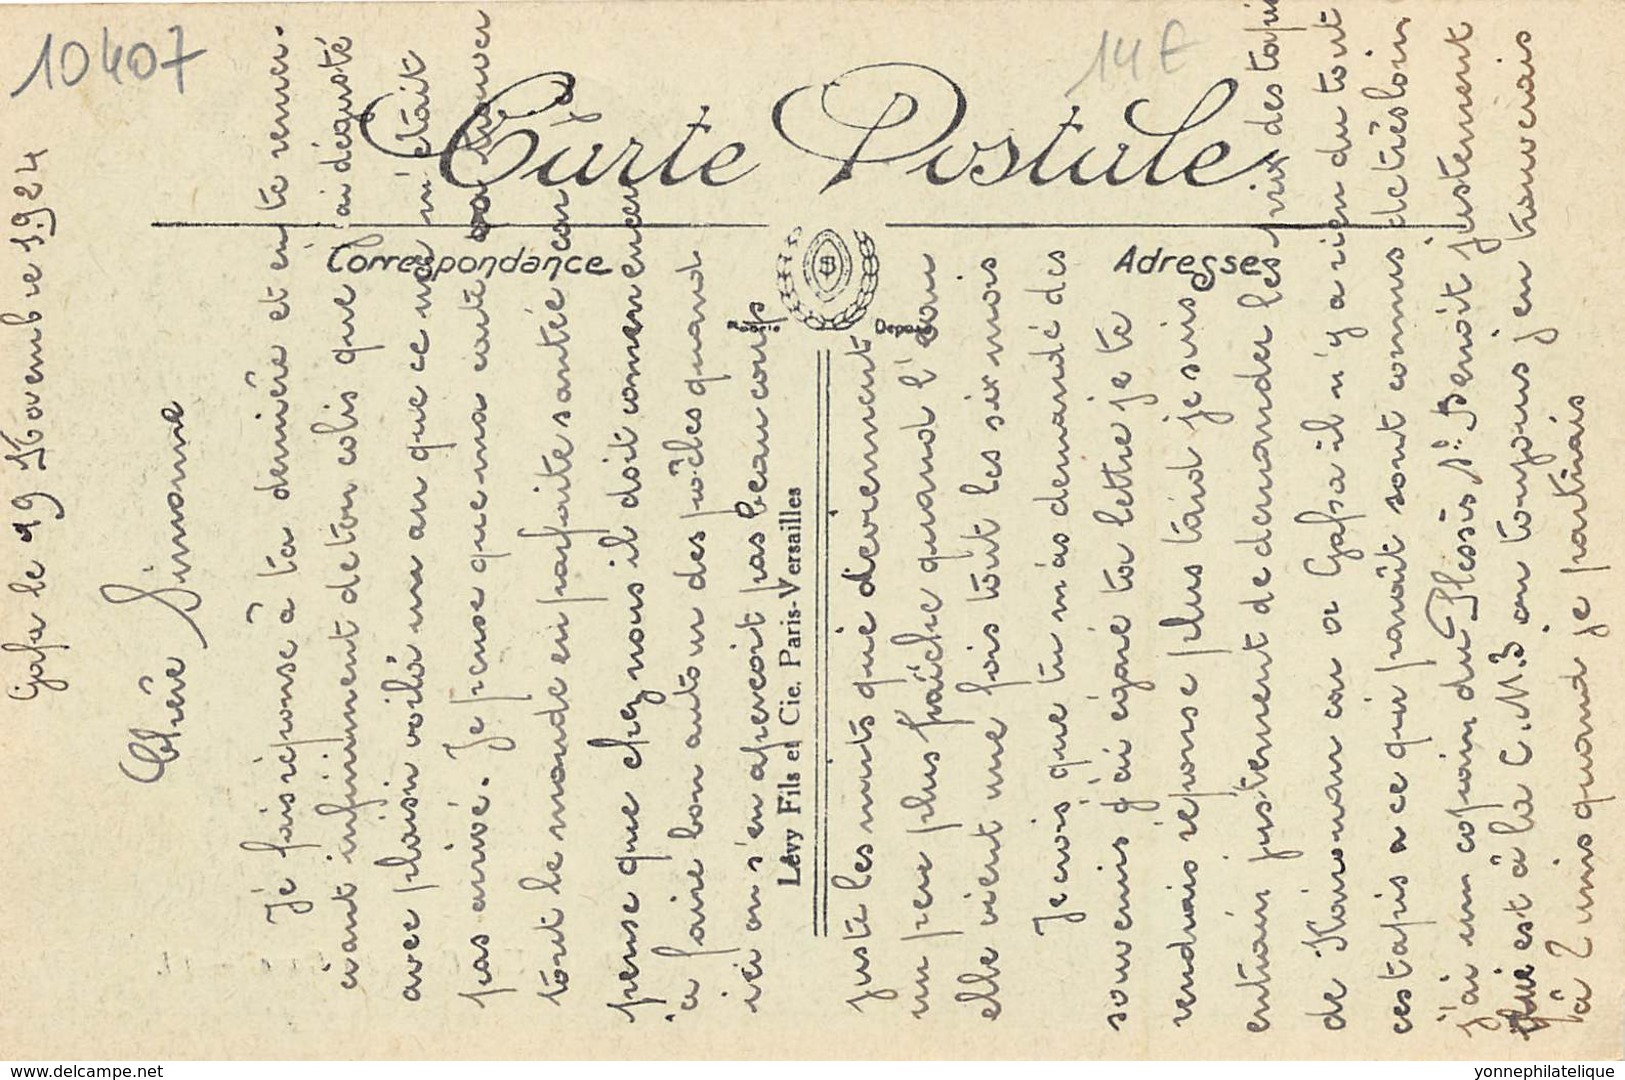 10407
14 €
Carte Postale
Correspondance
Adresse
Lévy Fils et Cie. Paris-Versailles
Gafsa le 19 Novembre 1924
Chère Simonne
Je fais réponse à ta dernière et en te remer-
ciant infiniment de ton colis que j'ai dégusté
avec plaisir voilà un an que ce ne m'était
pas arrivé. Je pense que ma carte va trouver
tout le monde en parfaite santée car je
pense que chez nous il doit commencer
a faire bon autour des poêles quand
ici on s'en apercoit pas beaucoup
juste les nuits qui deviennent
un peu plus fraîche quand l'eau
elle vient une fois tout les six mois
Je crois que tu m'as demandé des
souvenis j'ai égaré ta lettre je te
rendrais réponse plus tard je suis
entrain justement de demander les prix des tapis
de Kairouan car a Gafsa il n'y a rien du tout
ces tapis a ce qui paraît sont connus de très loin
j'ai un copain du Plessis St Benoit justement
qui est à la C.M.3 on toujours j'en trouverais
à 2 mis quand je partirais
Delcampe.net
yonnephilatelique